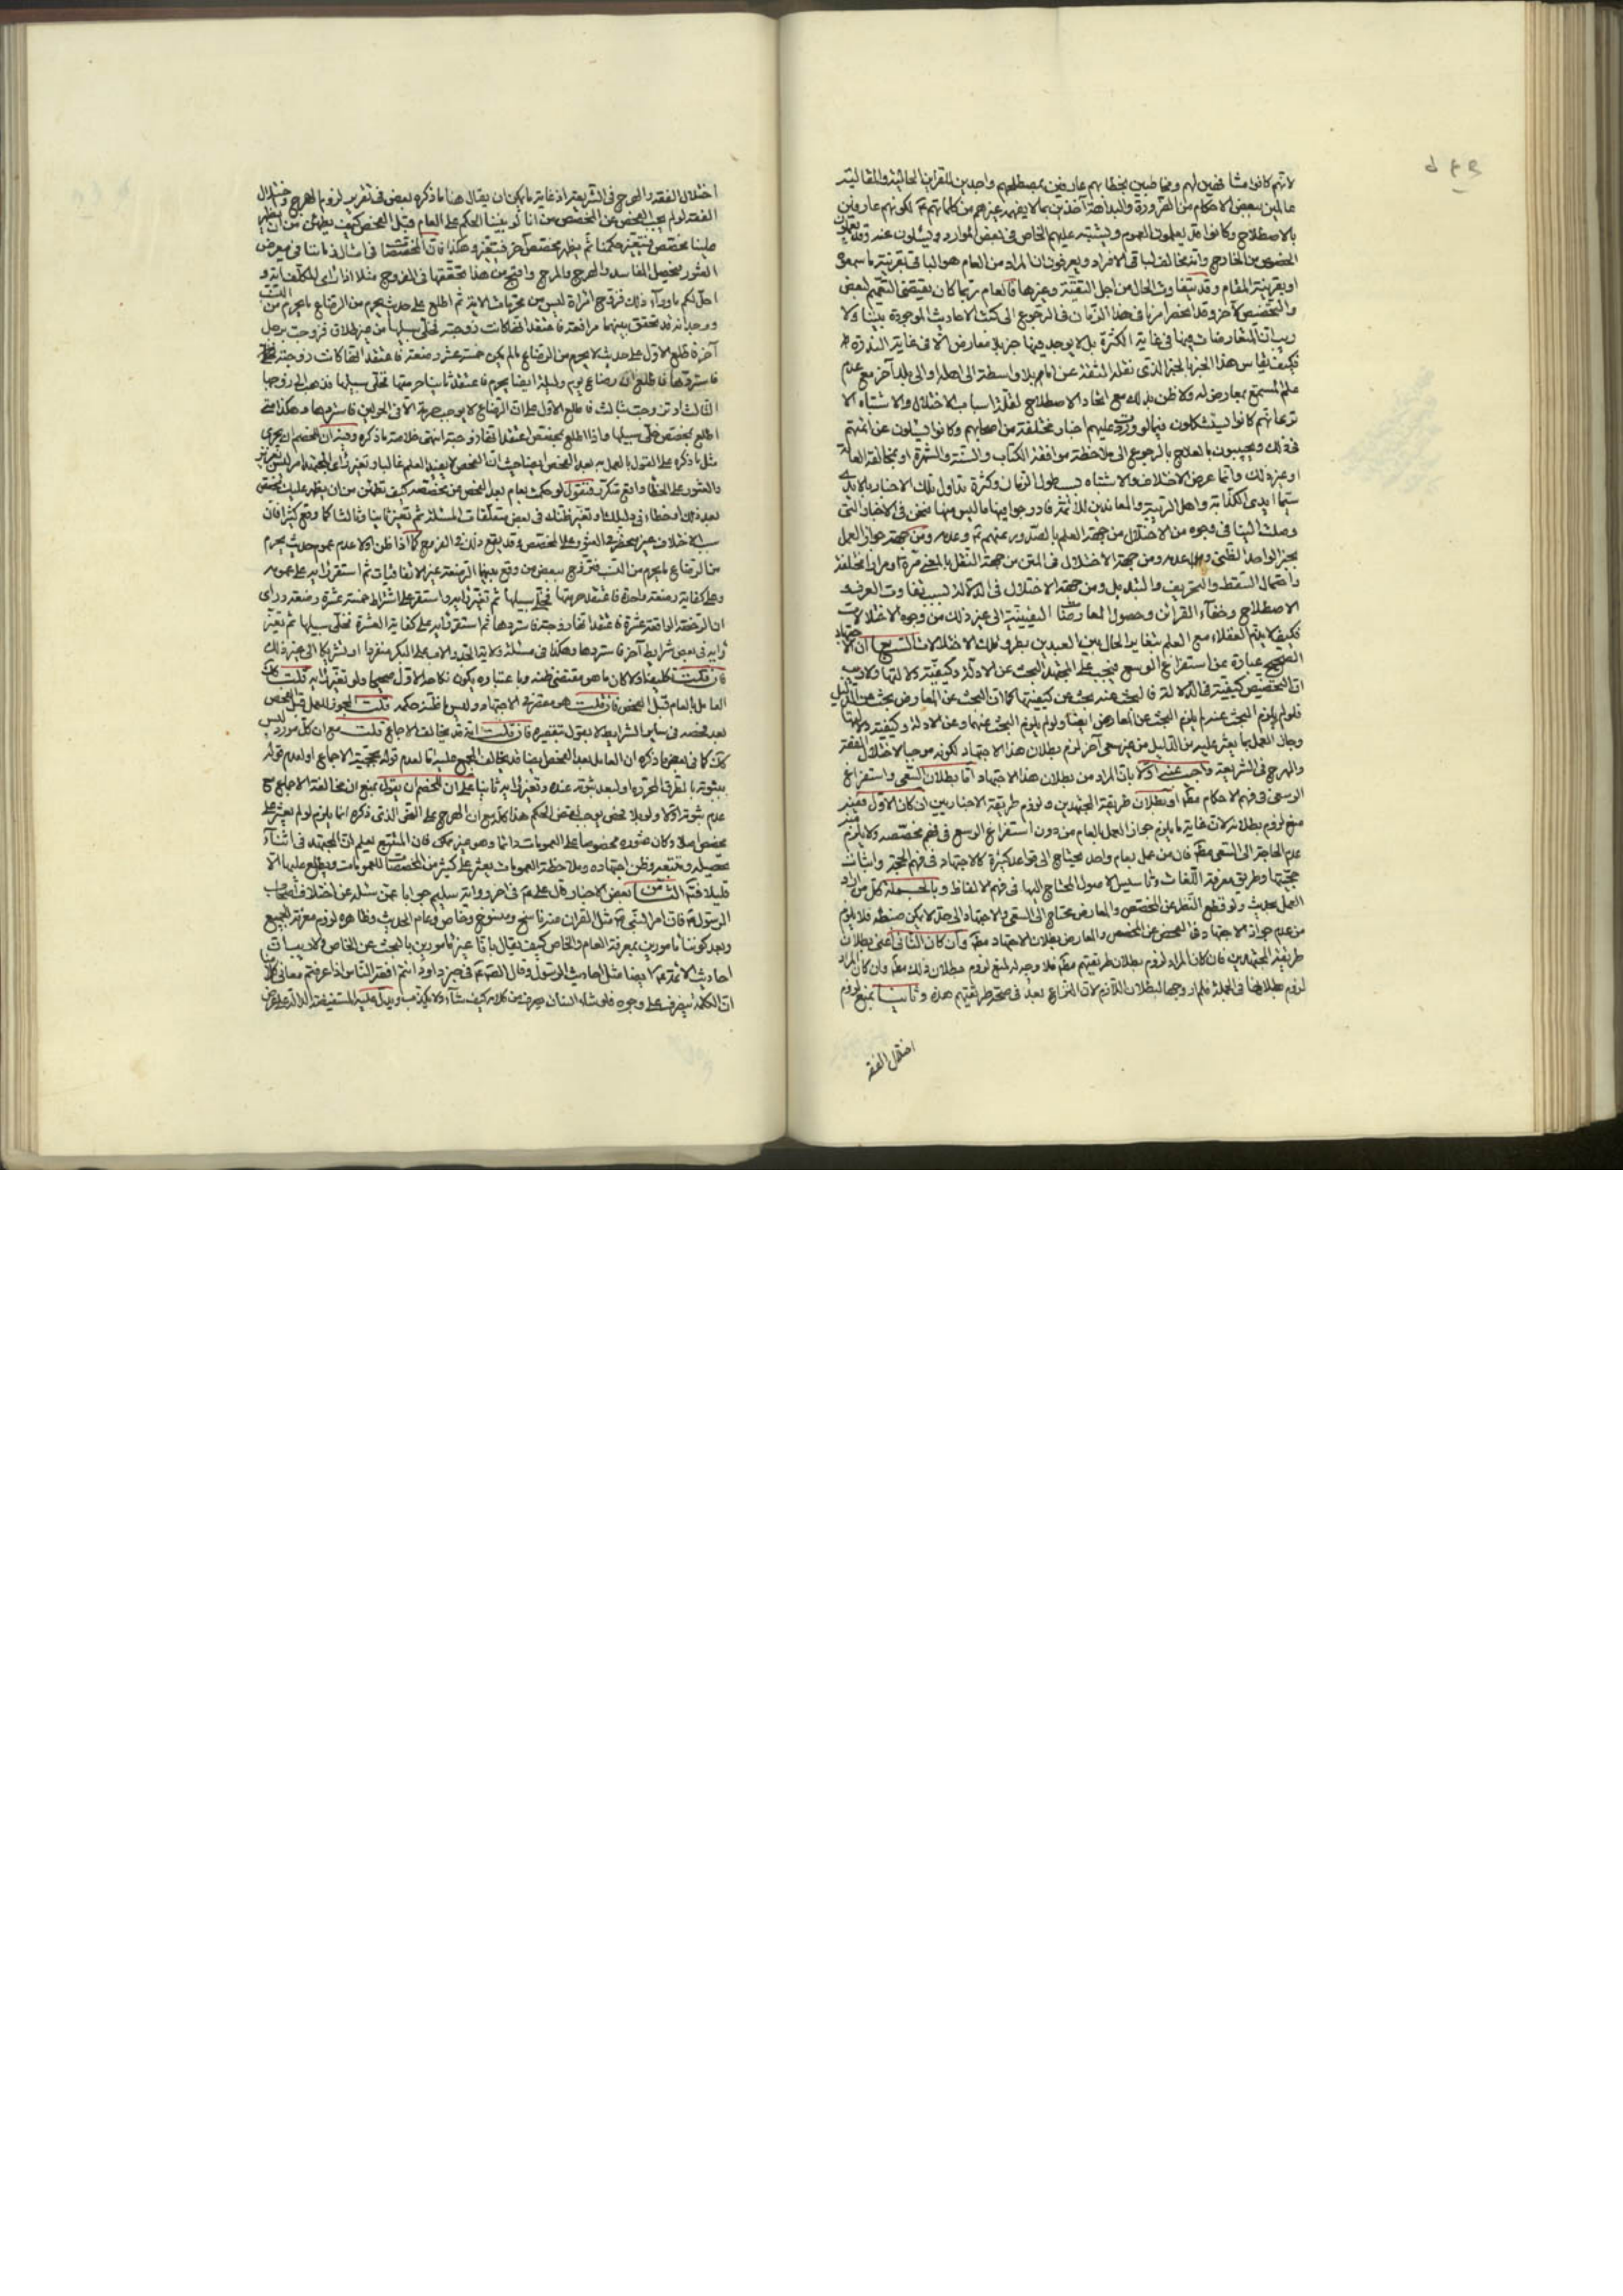 لانهم كانوا مشافهين لهم ومخاطبين بخطابهم عارفين بمصطلحهم واجدين للقراين الحالية والمقالية
عالمين ببعض الاحكام من الضرورة والبداهة آخذين بما لا يفهمه غيرهم من كلماتهم لكونهم عارفين
بالاصطلاح وكانوا يعلمون العموم ويشتبه عليهم الخاص في بعض الموارد ويسئلون عنه
الخصوص من الخارج وانه مخالف لباقي الافراد ويعرفون ان المراد من العام هو الباقي بقرينة ما سمعوا
او بقرينة المقام وقد يتفاوت الحال من اجل التقية وغيرها فالعام ربما كان يقتضي التعميم لبعض
والتخصيص لآخر وقد انحصر امرنا في هذا الزمان في الرجوع الى كتب الاحاديث الموجودة بيننا ولا
ريب ان المتعارضات فيها في غاية الكثرة بل لا يوجد فيها خبر بلا معارض الا في غاية الندرة
فكيف يقاس هذا الخبر بالخبر الذي نقله الثقة عن امام بلا واسطة الى اهله او الى بلد آخر مع عدم
علم المستمع بمعارض له ولا ظن بذلك مع اتحاد الاصطلاح لقلة اسباب الاختلال والاشتباه الا
ترى انهم كانوا يستشكلون فيما لو ورد عليهم اخبار مختلفة من اصحابهم وكانوا يسئلون عن ائمتهم
في ذلك ويجيبون بالعلاج بالرجوع الى ملاحظة موافقة الكتاب والسنة والشهرة او مخالفة العامة
او غير ذلك وانما عرض الاختلاف والاشتباه بسبب طول الزمان وكثرة تداول تلك الاخبار بالايدي
سيما ايدي الكذابة واهل الريبة والمعاندين للائمة فادرجوا فيها ما ليس منها فنحن في الاخبار التي
وصلت الينا في وجوه من الاختلال من جهة العلم بالصدور عنهم وعدمه ومن جهة جواز العمل
بخبر الواحد الظني وعدمه ومن جهة الاختلال في المتن من جهة النقل بالمعنى مرة او مرارا مختلفة
واحتمال السقط والتحريف والتبديل ومن جهة الاختلال في الدلالة بسبب تفاوت العرف
الاصطلاح وخفاء القرائن وحصول المعارضات اليقينية الى غير ذلك من وجوه الاختلالات
فكيف لا يذم العقلاء مع العلم بتغاير الحال بين العبدين بطرو تلك الاختلالات السابع ان الاجتهاد
الصحيح عبارة عن استفراغ الوسع فيجب على المجتهد البحث عن الادلة وكيفية دلالتها ولا ريب
ان التخصيص كيفية في الدلالة فالبحث عنه بحث عن كيفيتها كما ان البحث عن المعارض بحث عن الدليل
فلو لم يلزم البحث عنه لم يلزم البحث عن المعارض ايضا ولو لم يلزم البحث عنهما وعن الادلة وكيفية دلالتها
وجاز العمل بما يعثر عليه من الدليل من غير سعي آخر لزم بطلان هذا الاجتهاد لكونه موجبا لاختلال الفقه
والهرج في الشريعة واجيب عنه اولا بان المراد من بطلان هذا الاجتهاد اما بطلان السعي واستفراغ
الوسع في فهم الاحكام او بطلان طريقة المجتهدين ولزوم طريقة الاخباريين ان كان الاول ففيه
منع لزوم بطلانه لان غاية ما يلزم جواز العمل بالعام من دون استفراغ الوسع في فهم مخصصه ولا يلزم منه
عدم الحاجة الى السعي فان من عمل بعام واحد يحتاج الى قواعد كثيرة كالاجتهاد في فهم الحجة واثبات
حجيتها وطريق معرفة اللغات وساير مسائل الاصول المحتاج اليها في فهم الالفاظ وبالجملة كل من اراد
العمل بحديث ولو قطع النظر عن المخصص والمعارض محتاج الى السعي والاجتهاد الى حد لا يمكن ضبطه فلا يلزم
من عدم جواز الاجتهاد في الفحص عن المخصص والمعارض بطلان الاجتهاد وان كان الثاني اعني بطلان
طريقة المجتهدين فان كان المراد لزوم بطلان طريقتهم فلا وجه له لمنع لزوم بطلان ذلك وان كان المراد
لزوم بطلانها في الجملة فلم ار وجها لبطلان اللازم لان النزاع بعد في صحة طريقتهم هذه وثانيا بمنع لزوم
اختلال الفقه
اختلال الفقه والهرج في الشريعة اذ غاية ما يمكن ان يقال هنا ما ذكره بعض في تقرير لزوم الهرج واختلال
الفقه لو لم يجب الفحص عن المخصص من انا لو بنينا الحكم على العام قبل الفحص كيف يطمئن من ان يظهر
علينا مخصص فيتغير حكمنا ثم يظهر مخصص آخر فيتغير وهكذا فان المخصصات في امثال زماننا في معرض
العثور فيحصل المفاسد والهرج والمرج واقبح من هذا تحققها في الفروج مثلا اذا راى المكلف آية و
احل لكم ما وراء ذلك فزوج امراة ليس من محرمات الآية ثم اطلع على حديث يحرم من الرضاع ما يحرم من النسب
ووجد انه قد تحقق بينهما مراضعة فاعتقد انها كانت زوجته فخلى سبيلها من غير طلاق فزوجت برجل
آخر فاطلع الاول على حديث لا يحرم من الرضاع ما لم يكن خمسة عشر رضعة فاعتقد انها كانت زوجته
فاستردها فاطلع ان رضاع يوم وليلة ايضا يحرم فاعتقد ثانيا حرمتها فخلى سبيلها فذهب الى زوجها
الثاني او تزوجت بثالث فاطلع الاول على ان الرضاع لا يوجب حرمة الا في الحولين فاستردها وهكذا متى
اطلع بمخصص خلى سبيلها واذا اطلع بمخصص اعتقد انها زوجته انتهى خلاصة ما ذكره وفيه ان للخصم ان يجري
مثل ما ذكره على القول بالعمل به بعد الفحص ايضا حيث ان الفحص لا يفيد العلم غالبا وتغير راى المجتهد امر ليس بعزيز
والعثور على الخطا واقع متكرر فنقول لو حكمت بعام بعد الفحص عن مخصصه كيف تطمئن من ان يظهر عليك مخصص
بعد ذلك او خطاء في دليلك او تغير ظنك في بعض متعلقات المسئلة ثم تغير ثانيا وثالثا كما وقع كثيرا فان
سبب الاختلاف غير منحصر في العثور على المخصص وقد يقع ذلك في الفروج كما اذا ظن اولا عدم عموم حديث يحرم
من الرضاع ما يحرم من النسب فتزوج ببعض من وقع بينهما الرضعة غير الاتفاقيات ثم استقر رايه على عمومه
وعلى كفاية رضعة واحدة فاعتقد حرمتها فخلى سبيلها ثم تغير رايه واستقر على اشتراط خمسة عشرة رضعة وراى
ان الرضعة الواقعة عشرة فاعتقد انها زوجته فاستردها ثم استقر رايه على كفاية العشرة فخلى سبيلها ثم تغير
رايه في بعض شرايط آخر فاستردها وهكذا في مسئلة ولاية الجد والاب على البكر منفردا او تشريكا الى غير ذلك
فان قلت تكليفنا اولا كان ما هو مقتضى ظنه وباعتباره يكون نكاحه الاول صحيحا ولو تغير رايه قلت
العامل بالعام قبل الفحص فان قلت هو مقصر في الاجتهاد وليس ما ظنه حكمه قلت المجوز للعمل قبل الفحص
بعد فحصه في ساير الشرايط لا يقول بتقصيره فان قلت انه قد يخالف الاجماع قلت مع ان كل مورد ليس
كذلك كما في بعض ما ذكره ان العامل بعد الفحص ايضا قد يخالف المجمع عليه اما لعدم قوله بحجية الاجماع او لعدم قوله
بثبوته بالطرق المحررة او لبعد ثبوته عنده وتغير رايه ثانيا على ان للخصم ان يقول بمنع ان مخالفة الاجماع مع
عدم ثبوته اولا ولو بلا فحص يوجب نقض الحكم هذا كله مع ان الهرج على النحو الذي ذكره انما يلزم لو لم يعثر على
مخصص اصلا وكان عثوره مخصوصا على العمومات دائما وهو غير ممكن فان المتتبع يعلم ان المجتهد في اثناء
تحصيله وتتبعه وظن اجتهاده وملاحظة العمومات يعثر على كثير من المخصصات للعمومات ويطلع عليها الا
قليلا فتم الثامن بعض الاخبار قال على ع في آخر رواية سليم جوابا عمن سئله عن اختلاف اصحاب
الرسول ص فان امر النبي ص مثل القران منه ناسخ ومنسوخ وخاص وعام الحديث وظاهره لزوم معرفة الجميع
وبعد كوننا مامورين بمعرفة العام والخاص كيف يقال بانا غير مامورين بالبحث عن الخاص ولا ريب ان
احاديث الائمة ع ايضا مثل احاديث الرسول وقال الصادق ع في خبر داود انتم افقه الناس اذا عرفتم معاني كلامنا
ان الكلمة لتصرف على وجوه فلو شاء انسان صرف من كلامه كيف شاء ولا يكذب ويدل عليه المستفيضة الدالة على عرض